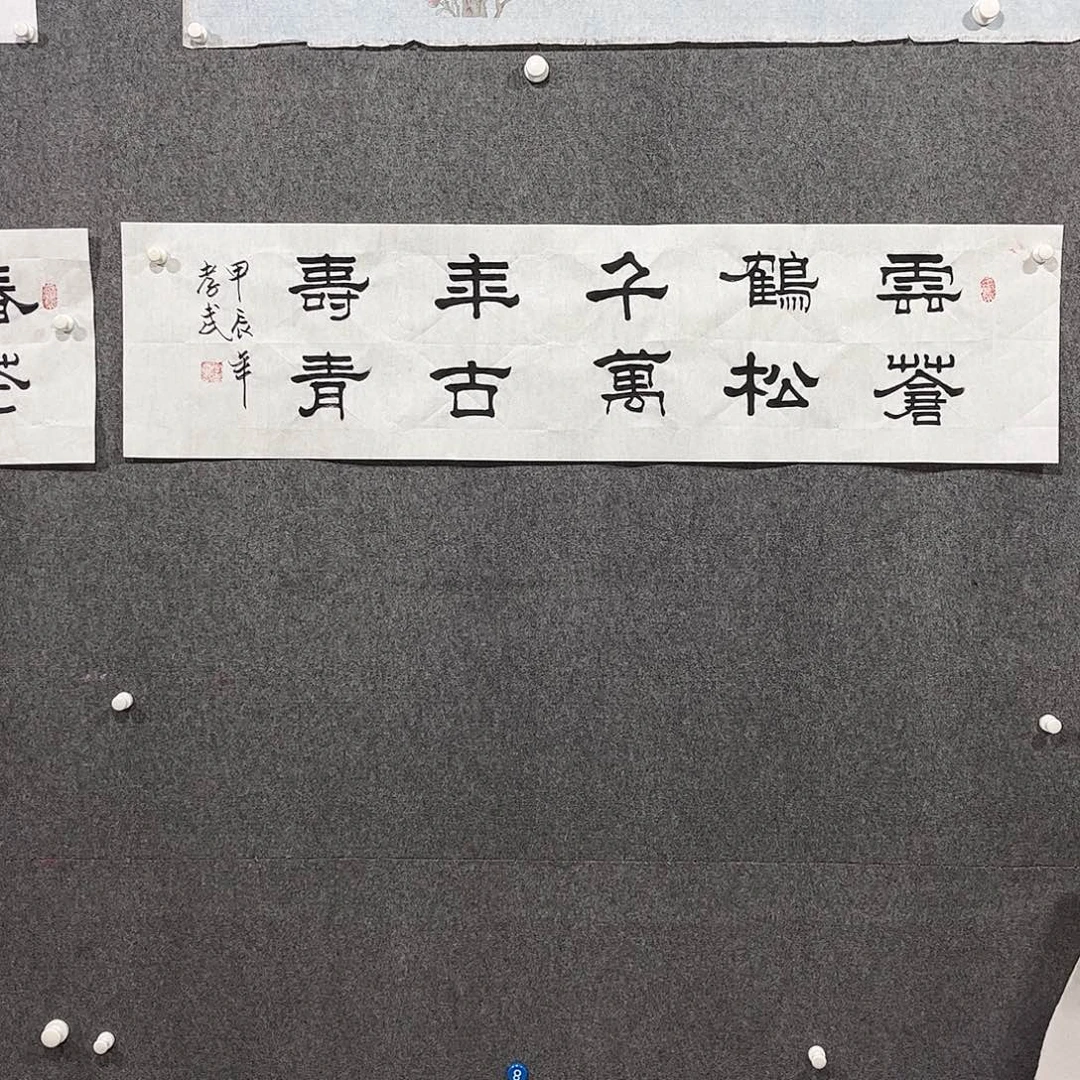 雲鶴千年壽
蒼松萬古青
甲辰年
孝武